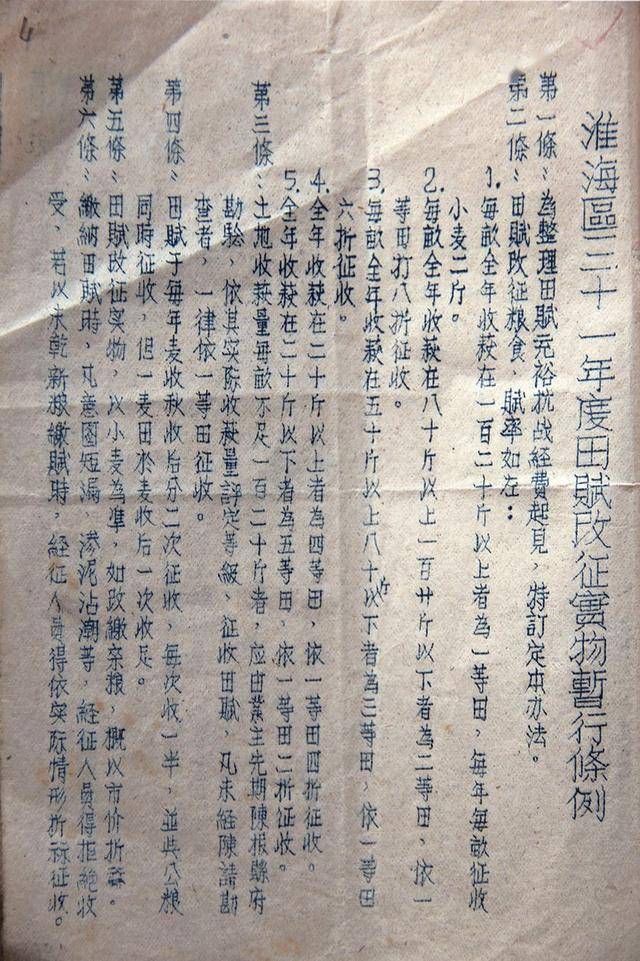 4
淮海區三十一年度田賦改征實物暫行條例
第一條：為整理田賦充裕抗战経費起見，特訂定本办法。
第二條：田賦改征粮食，賦率如左：
1.每畝全年收获在一百二十斤以上者為一等田，每年每畝征收
小麦二斤。
2.每畝全年收获在八十斤以上一百廿斤以下者為二等田，依一
等田打八折征收。
3.每畝全年收获在五十斤以上八十斤以下者為三等田，依一等田
六折征收。
4.全年收获在二十斤以上者為四等田，依一等田四折征收。
5.全年收获在二十斤以下者為五等田，依一等田二折征收。
第三條：土地收获量每畝不足一百二十斤者，应由業主先期陳报縣府
勘驗，依其实际收获量評定等級，征收田賦，凡未経陳請勘
查者，一律依一等田征收。
第四條：田賦于每年麦收秋收后分二次征收，每次收一半，並与公粮
同時征收，但一麦田於麦收后一次收足。
第五條：田賦改征实物，以小麦為準，如改繳杂粮，概以市价折算。
第六條：繳納田賦時，凡意圖短漏，渗泥沾潮等，経征人員得拒絶收
受，若以未乾新粮繳賦時，経征人員得依实际情形折算征收。